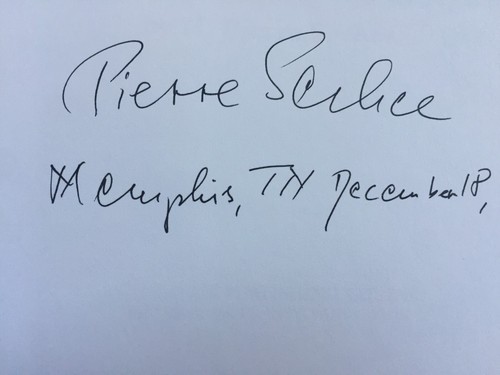 Pierre
Memphis, TN December 18,